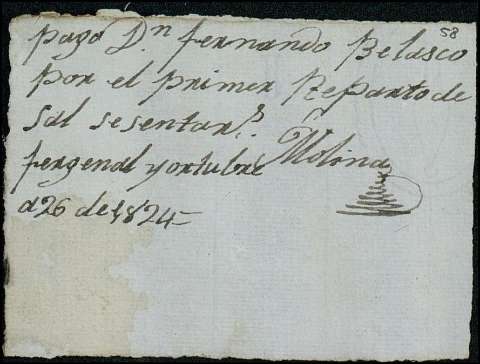 58
pago Dn. fernando Belasco
por el primer Reparto de
sal sesenta rs.
fergenal y octubre Molina
a 26 de 1824